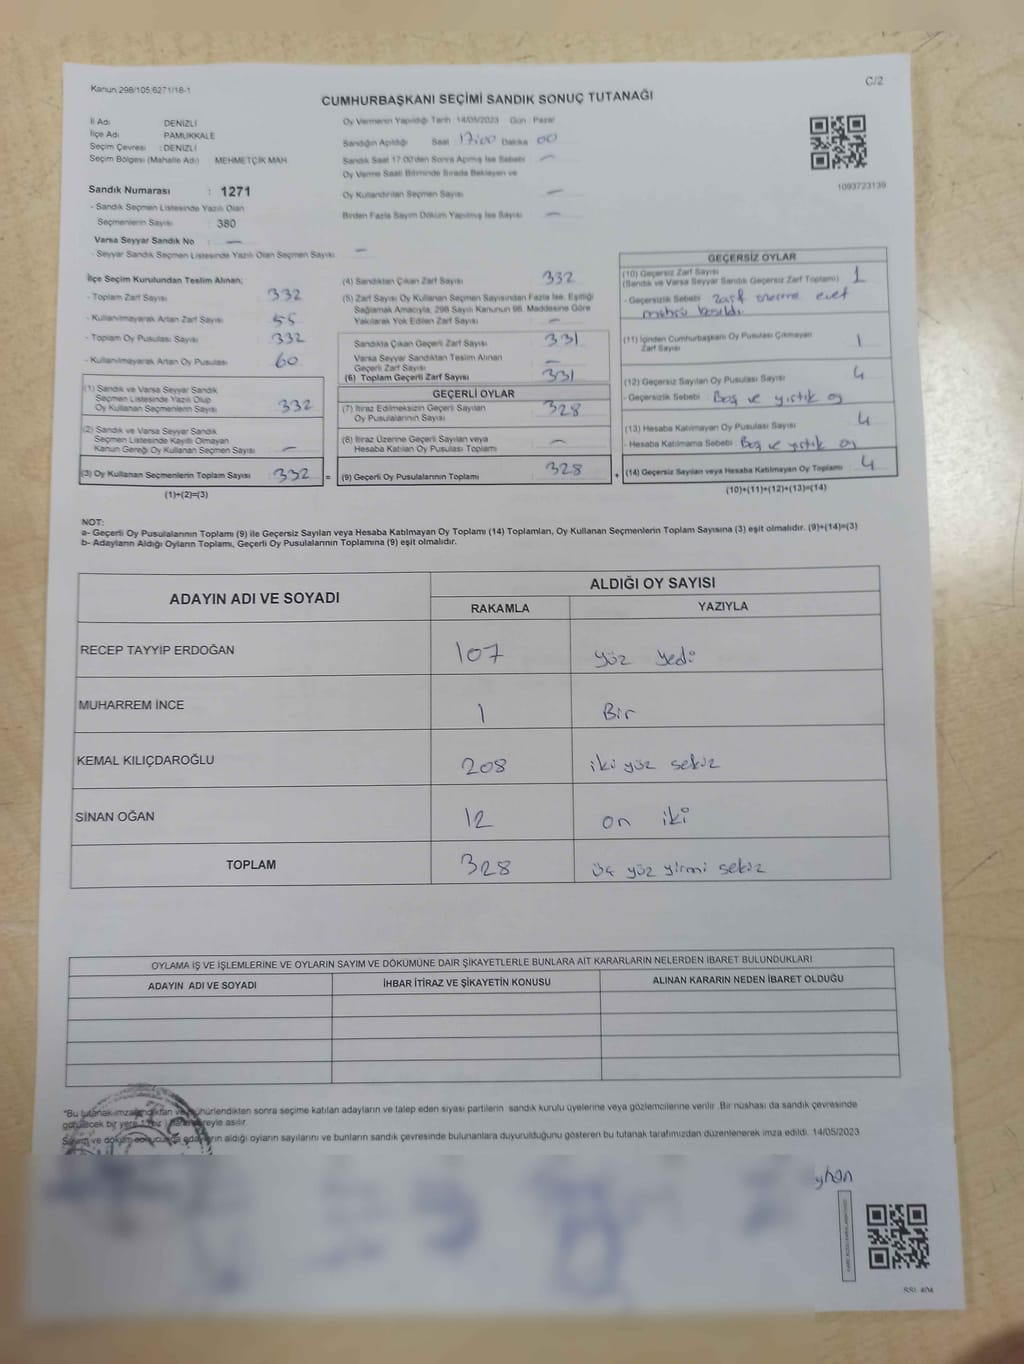 C/2
Kanun 298/105,6271/18-1
CUMHURBAŞKANI SEÇİMİ SANDIK SONUÇ TUTANAĞI
İl Adı : DENİZLİ
İlçe Adı : PAMUKKALE
Seçim Çevresi : DENİZLİ
Seçim Bölgesi (Mahalle Adı) : MEHMETÇİK MAH
Sandık Numarası : 1271
- Sandık Seçmen Listesinde Yazılı Olan
Seçmenlerin Sayısı : 380
Varsa Seyyar Sandık No : —
- Seyyar Sandık Seçmen Listesinde Yazılı Olan Seçmen Sayısı : —
Oy Vermenin Yapıldığı Tarih 14/05/2023 Gün Pazar
Sandığın Açıldığı Saat 17:00 Dakika 00
Sandık Saat 17:00'den Sonra Açılmış İse Sebebi —
Oy Verme Saati Bitiminde Sırada Bekleyen ve
Oy Kullandırılan Seçmen Sayısı —
Birden Fazla Sayım Döküm Yapılmış İse Sayısı —
1093723139
İlçe Seçim Kurulundan Teslim Alınan;
- Toplam Zarf Sayısı 332
- Kullanılmayarak Artan Zarf Sayısı 55
- Toplam Oy Pusulası Sayısı 332
- Kullanılmayarak Artan Oy Pusulası 60
(1) Sandık ve Varsa Seyyar Sandık
Seçmen Listesinde Yazılı Olup
Oy Kullanan Seçmenlerin Sayısı 332
(2) Sandık ve Varsa Seyyar Sandık
Seçmen Listesinde Kayıtlı Olmayan
Kanun Gereği Oy Kullanan Seçmen Sayısı —
(3) Oy Kullanan Seçmenlerin Toplam Sayısı 332 =
(1)+(2)=(3)
(4) Sandıktan Çıkan Zarf Sayısı 332
(5) Zarf Sayısı Oy Kullanan Seçmen Sayısından Fazla İse, Eşitliği
Sağlamak Amacıyla, 298 Sayılı Kanunun 98. Maddesine Göre
Yakılarak Yok Edilen Zarf Sayısı —
Sandıkta Çıkan Geçerli Zarf Sayısı 331
Varsa Seyyar Sandıktan Teslim Alınan
Geçerli Zarf Sayısı —
(6) Toplam Geçerli Zarf Sayısı 331
GEÇERLİ OYLAR
(7) İtiraz Edilmeksizin Geçerli Sayılan
Oy Pusulalarının Sayısı 328
(8) İtiraz Üzerine Geçerli Sayılan veya
Hesaba Katılan Oy Pusulası Toplamı —
(9) Geçerli Oy Pusulalarının Toplamı 328 +
GEÇERSİZ OYLAR
(10) Geçersiz Zarf Sayısı
(Sandık ve Varsa Seyyar Sandık Geçersiz Zarf Toplamı) 1
- Geçersizlik Sebebi : Zarf üzerine evet
mührü basıldı.
(11) İçinden Cumhurbaşkanı Oy Pusulası Çıkmayan
Zarf Sayısı 1
(12) Geçersiz Sayılan Oy Pusulası Sayısı 4
- Geçersizlik Sebebi : Boş ve yırtık oy
(13) Hesaba Katılmayan Oy Pusulası Sayısı 4
- Hesaba Katılmama Sebebi : Boş ve yırtık oy
(14) Geçersiz Sayılan veya Hesaba Katılmayan Oy Toplamı 4
(10)+(11)+(12)+(13)=(14)
NOT:
a- Geçerli Oy Pusulalarının Toplamı (9) ile Geçersiz Sayılan veya Hesaba Katılmayan Oy Toplamı (14) Toplamları, Oy Kullanan Seçmenlerin Toplam Sayısına (3) eşit olmalıdır. (9)+(14)=(3)
b- Adayların Aldığı Oyların Toplamı, Geçerli Oy Pusulalarının Toplamına (9) eşit olmalıdır.
ADAYIN ADI VE SOYADI ALDIĞI OY SAYISI
RAKAMLA YAZIYLA
RECEP TAYYİP ERDOĞAN 107 yüz yedi
MUHARREM İNCE 1 Bir
KEMAL KILIÇDAROĞLU 208 iki yüz sekiz
SİNAN OĞAN 12 on iki
TOPLAM 328 üç yüz yirmi sekiz
OYLAMA İŞ VE İŞLEMLERİNE VE OYLARIN SAYIM VE DÖKÜMÜNE DAİR ŞİKAYETLERLE BUNLARA AİT KARARLARIN NELERDEN İBARET BULUNDUKLARI
ADAYIN ADI VE SOYADI İHBAR İTİRAZ VE ŞİKAYETİN KONUSU ALINAN KARARIN NEDEN İBARET OLDUĞU
"Bu tutanak imzalandıktan ve mühürlendikten sonra seçime katılan adayların ve talep eden siyasi partilerin sandık kurulu üyelerine veya gözlemcilerine verilir. Bir nüshası da sandık çevresinde
görülecek bir yere süreyle asılır.
Sayım ve döküm sonucunda adayların aldığı oyların sayılarını ve bunların sandık çevresinde bulunanlara duyurulduğunu gösteren bu tutanak tarafımızdan düzenlenerek imza edildi. 14/05/2023
yhan